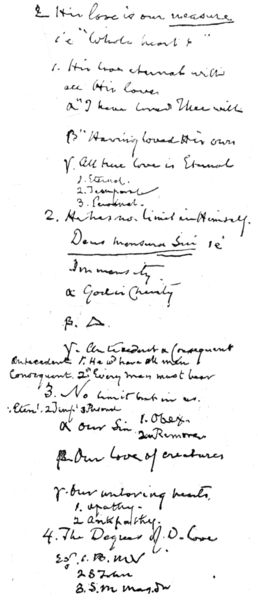 2 His love is our measure
i'e "Whole heart & "
1. His love eternal with
all His loves
α "I have loved Thee with
β "Having loved His own
γ. All true love is Eternal
1. Eternal.
2. Temporal
3. Personal.
2. He has no limit in Himself.
Deus mensura Sui i'e
Immensity
α God is Charity
β. Δ.
γ. Antecedent & Consequent
Antecedent 1. He w have all men
Consequent. 2. Every man must bear
3. No limit but in us.
α Our Sin 1. Obex.
2. Remora
β Our love of creatures
γ. Our unloving hearts
1. apathy.
2 antipathy.
4. The Degrees of D. Love
Eg. 1. B. M V
2 S John
3. S. M